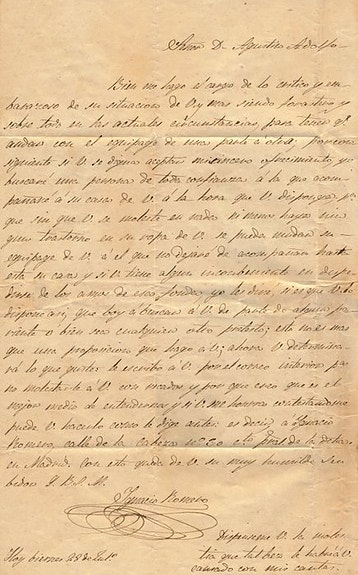 Señor D. Agustin Adolfo
Bien me hago el cargo de lo critico y em
barazoso de su situacion de V. y mas siendo forastero y
sobre todo en las actuales circunstancias, para tener qe.
andar con el equipage de una parte a otra; por con
siguiente si V. se digna aceptar mi sincero ofrecimiento, yo
buscaré una persona de toda confianza a la que acom
pañaré a su casa de V. a la hora que V. disponga pa.
que sin que V. se moleste en nada ni menos haya nin
gun trastorno en su ropa de V. se pueda mudar su
equipage de V. a el que no dejaré de acompañar hasta
esta su casa y si V. tiene algun incombeniente en despe
dirse de los amos de esa fonda yo les diré, si es que V. lo
dispone asi, que boy a buscar a V. de parte de algun pa
riente o bien sea cualquiera otro pretesto; esto no es mas
que una proposicion que hago a V.; ahora V. determina
rá lo que guste: le escribo a V. por el correo interior pa.
no molestarle a V. con recados y por que creo que es el
mejor medio de entendernos y si V. me honra contestandome
puede V. hacerlo como le digo antes es decir, a Ignacio
Romero, calle de la Cabeza no. 20 cto. pral. de la
en Madrid. Con esto queda de V. su muy humilde Ser
bidor Q. B. S. M.
Ignacio Romero
Dispenseme V. la moles
tia que tal bez le habrá
causado con mis cartas.
Hoy biernes 28 de Julo.